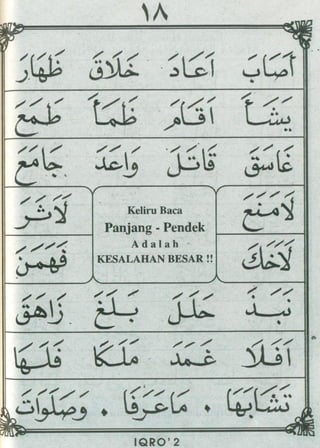 ١٨
أَصَابَ اَعَادَ خَلَاقَ ظَهَارَ
يَشَأَ اَقَامَ ظَمَأَ طَمَعَ
غَاسَقَ قَاتَلَ وَاعَدَ جَامَعَ
لَامَنَعَ لَاثَرَ
Keliru Baca
Panjang - Pendek
Adalah
KESALAHAN BESAR !!
لَاخَكَ فَهَمَنَ
نَبَذَ حَلَلَ بَلَغَ زَاهَقَ
اَفَلَا عَمَدَ مَلَكَا فَلَهَا
تَشَابَهَا . مَاعَرَفَا . وَصَلَوَاتَ
IQRO' 2